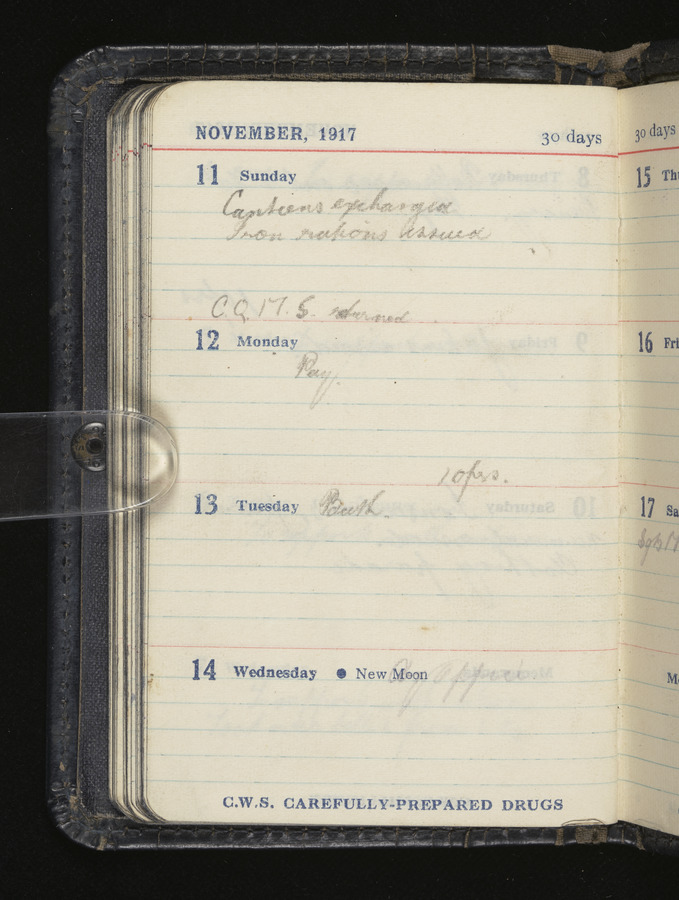 NOVEMBER, 1917 30 days
11 Sunday
Cantiens exchanged
Iron rations issued
C.Q.M.S. returned
12 Monday
Pay.
10frs.
13 Tuesday Bath.
14 Wednesday ● New Moon
C.W.S. CAREFULLY-PREPARED DRUGS
30 days
15 Th
16 Fri
17 Sa